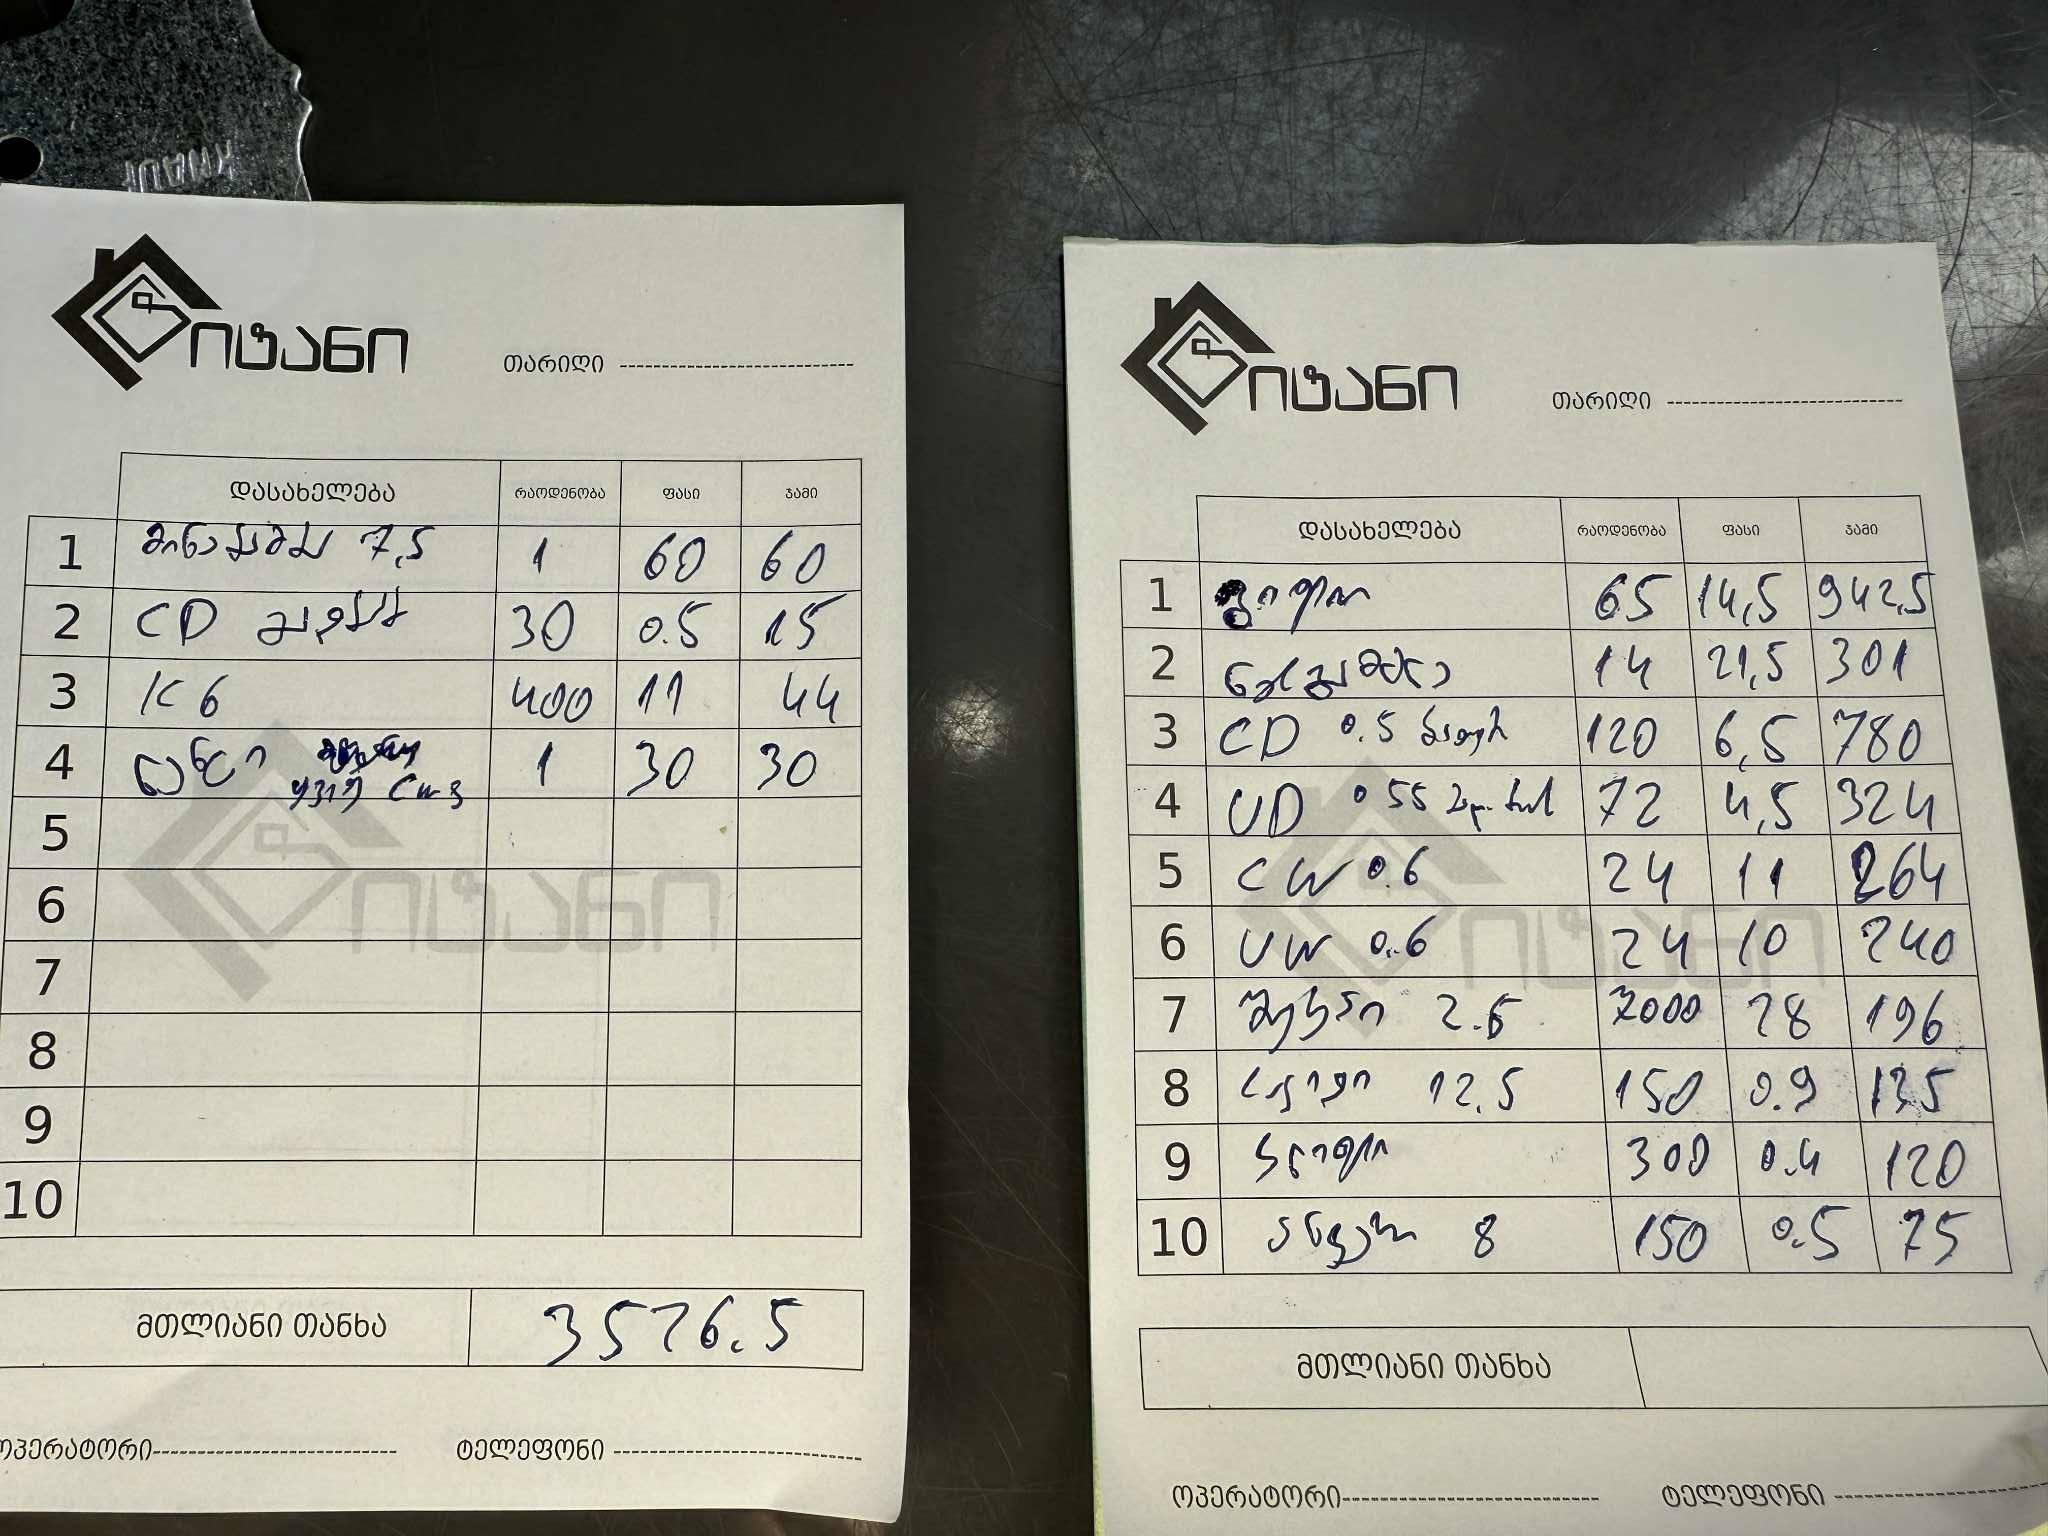 KNAUF
ტიტანი
თარიღი
დასახელება რაოდენობა ფასი ჯამი
1 მინაბამბა 7,5 1 60 60
2 CD გადაბმა 30 0.5 15
3 K6 400 11 44
4 ლენტი 1 30 30
5
6
7
8
9
10
მთლიანი თანხა 3576.5
ოპერატორი ტელეფონი
ტიტანი
თარიღი
დასახელება რაოდენობა ფასი ჯამი
1 65 14,5 942,5
2 ნესტგამძლე 14 21,5 301
3 CD 0.5 120 6,5 780
4 UD 0.55 72 4,5 324
5 CW 0.6 24 11 264
6 UW 0.6 24 10 240
7 შურუპი 2.5 7000 28 196
8 12.5 150 0.9 135
9 300 0.4 120
10 ანკერი 8 150 0.5 75
მთლიანი თანხა
ოპერატორი ტელეფონი